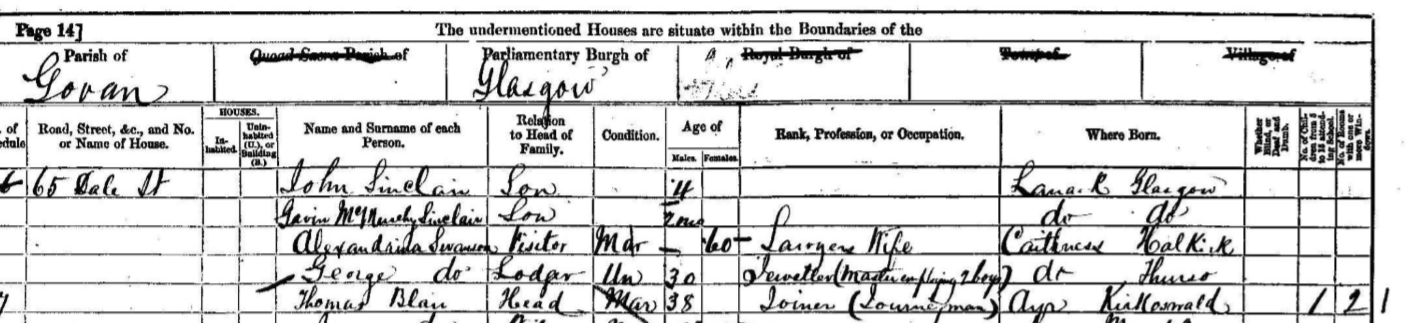 Page 14] The undermentioned Houses are situate within the Boundaries of the
Parish of Quoad Sacra Parish of Parliamentary Burgh of Royal Burgh of Town of Village of
Govan Glasgow
HOUSES.
Road, Street, &c., and No. or Name of House. In-habited. Unin-habited (U.), or Building (B.) Name and Surname of each Person. Relation to Head of Family. Condition. Age of Males. Females. Rank, Profession, or Occupation. Where Born. Whether Blind, or Deaf and Dumb. No. of Chil-dren from 5 to 15 attend-ing School. No. of Rooms with one or more Win-dows.
65 Dale St John Sinclair Son 4 Lanark Glasgow
Gavin Sinclair Son 2 mo do do
Alexandrida Swanson Visitor Mar 60 Lawyers Wife Caithness Halkirk
George do Lodger Un 30 Jeweller (Master employing 2 boys) do Thurso
Thomas Blair Head Mar 38 Joiner (Journeyman) Ayr Kirkoswald 1 2 1